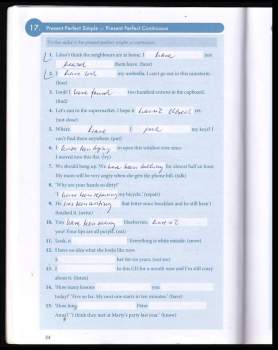 17. Present Perfect Simple or Present Perfect Continuous
Put the verbs in the present perfect simple or continuous.
1. I don't think the neighbours are at home. I have not
heard them leave. (hear)
2. I have lost my umbrella. I can't go out in this rainstorm.
(lose)
3. Look! I have found two hundred euros in the cupboard.
(find)
4. Let's run to the supermarket. I hope it hasn't closed yet.
(not close)
5. Where have I put my keys? I
can't find them anywhere. (put)
6. I have been trying to open this window ever since
I moved into this flat. (try)
7. We should hang up. We have been talking for almost half an hour.
My mum will be very angry when she gets the phone bill. (talk)
8. "Why are your hands so dirty?"
"I have been repairing my bicycle." (repair)
9. He has been writing that letter since breakfast and he still hasn't
finished it. (write)
10. You have been eating blueberries, haven't
you? Your lips are all purple. (eat)
11. Look, it . Everything is white outside. (snow)
12. I have no idea what she looks like now.
I her for six years. (not see)
13. I to this CD for a month now and I'm still crazy
about it. (listen)
14. "How many lessons you
today? "Five so far. My next one starts in ten minutes." (have)
15. "How long Peter
Anna?" "I think they met at Marty's party last year." (know)